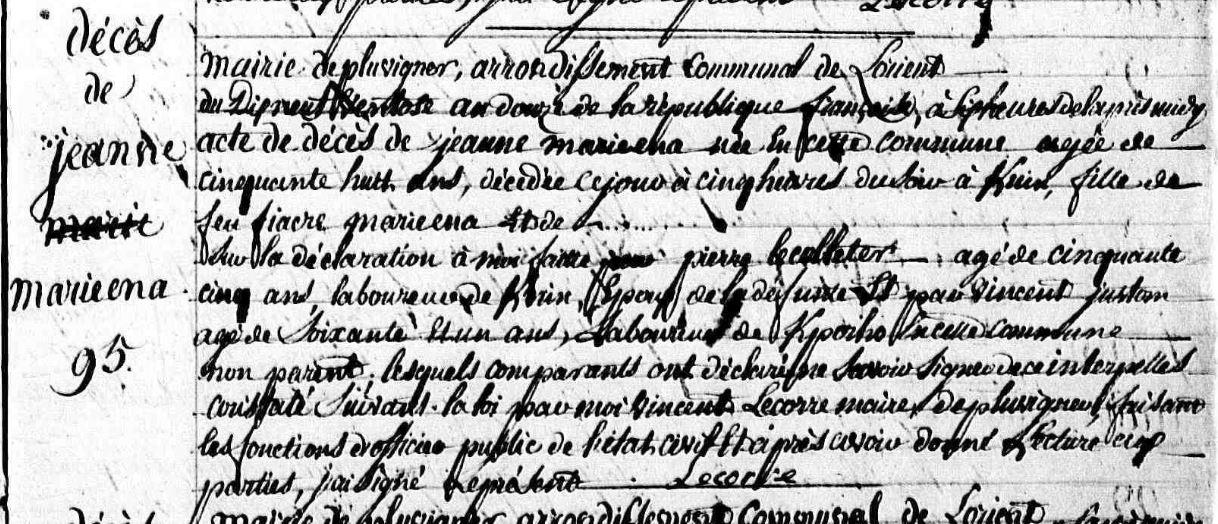 décès
de
jeanne
marie
marieena
95.
mairie de pluvigner, arrondissement communal de Lorient
du Dix neuf Ventose an douze de la république française, à sept heures de l'après midy
acte de décès de jeanne marieena née en cette commune agée de
cinquante huit ans, décédée ce jour à cinq heures du soir à fille de
feu fiacre marieena et de
sur la déclaration à moi faitte pierre agé de cinquante
cinq ans, laboureur de Epoux de la défunte Et par Vincent
agé de Soixante Et un ans, Laboureur de En cette commune
non parent, lesquels comparants ont déclaré ne savoir signer de ce interpellés
constaté Suivant la loi par moi Vincent Lecorre maire de pluvigner faisant
les fonctions d'officier public de l'état civil Et après avoir donné Lecture aux
parties, j'ai signé le présent Lecorre
mairie de pluvigner, arrondissement communal de Lorient